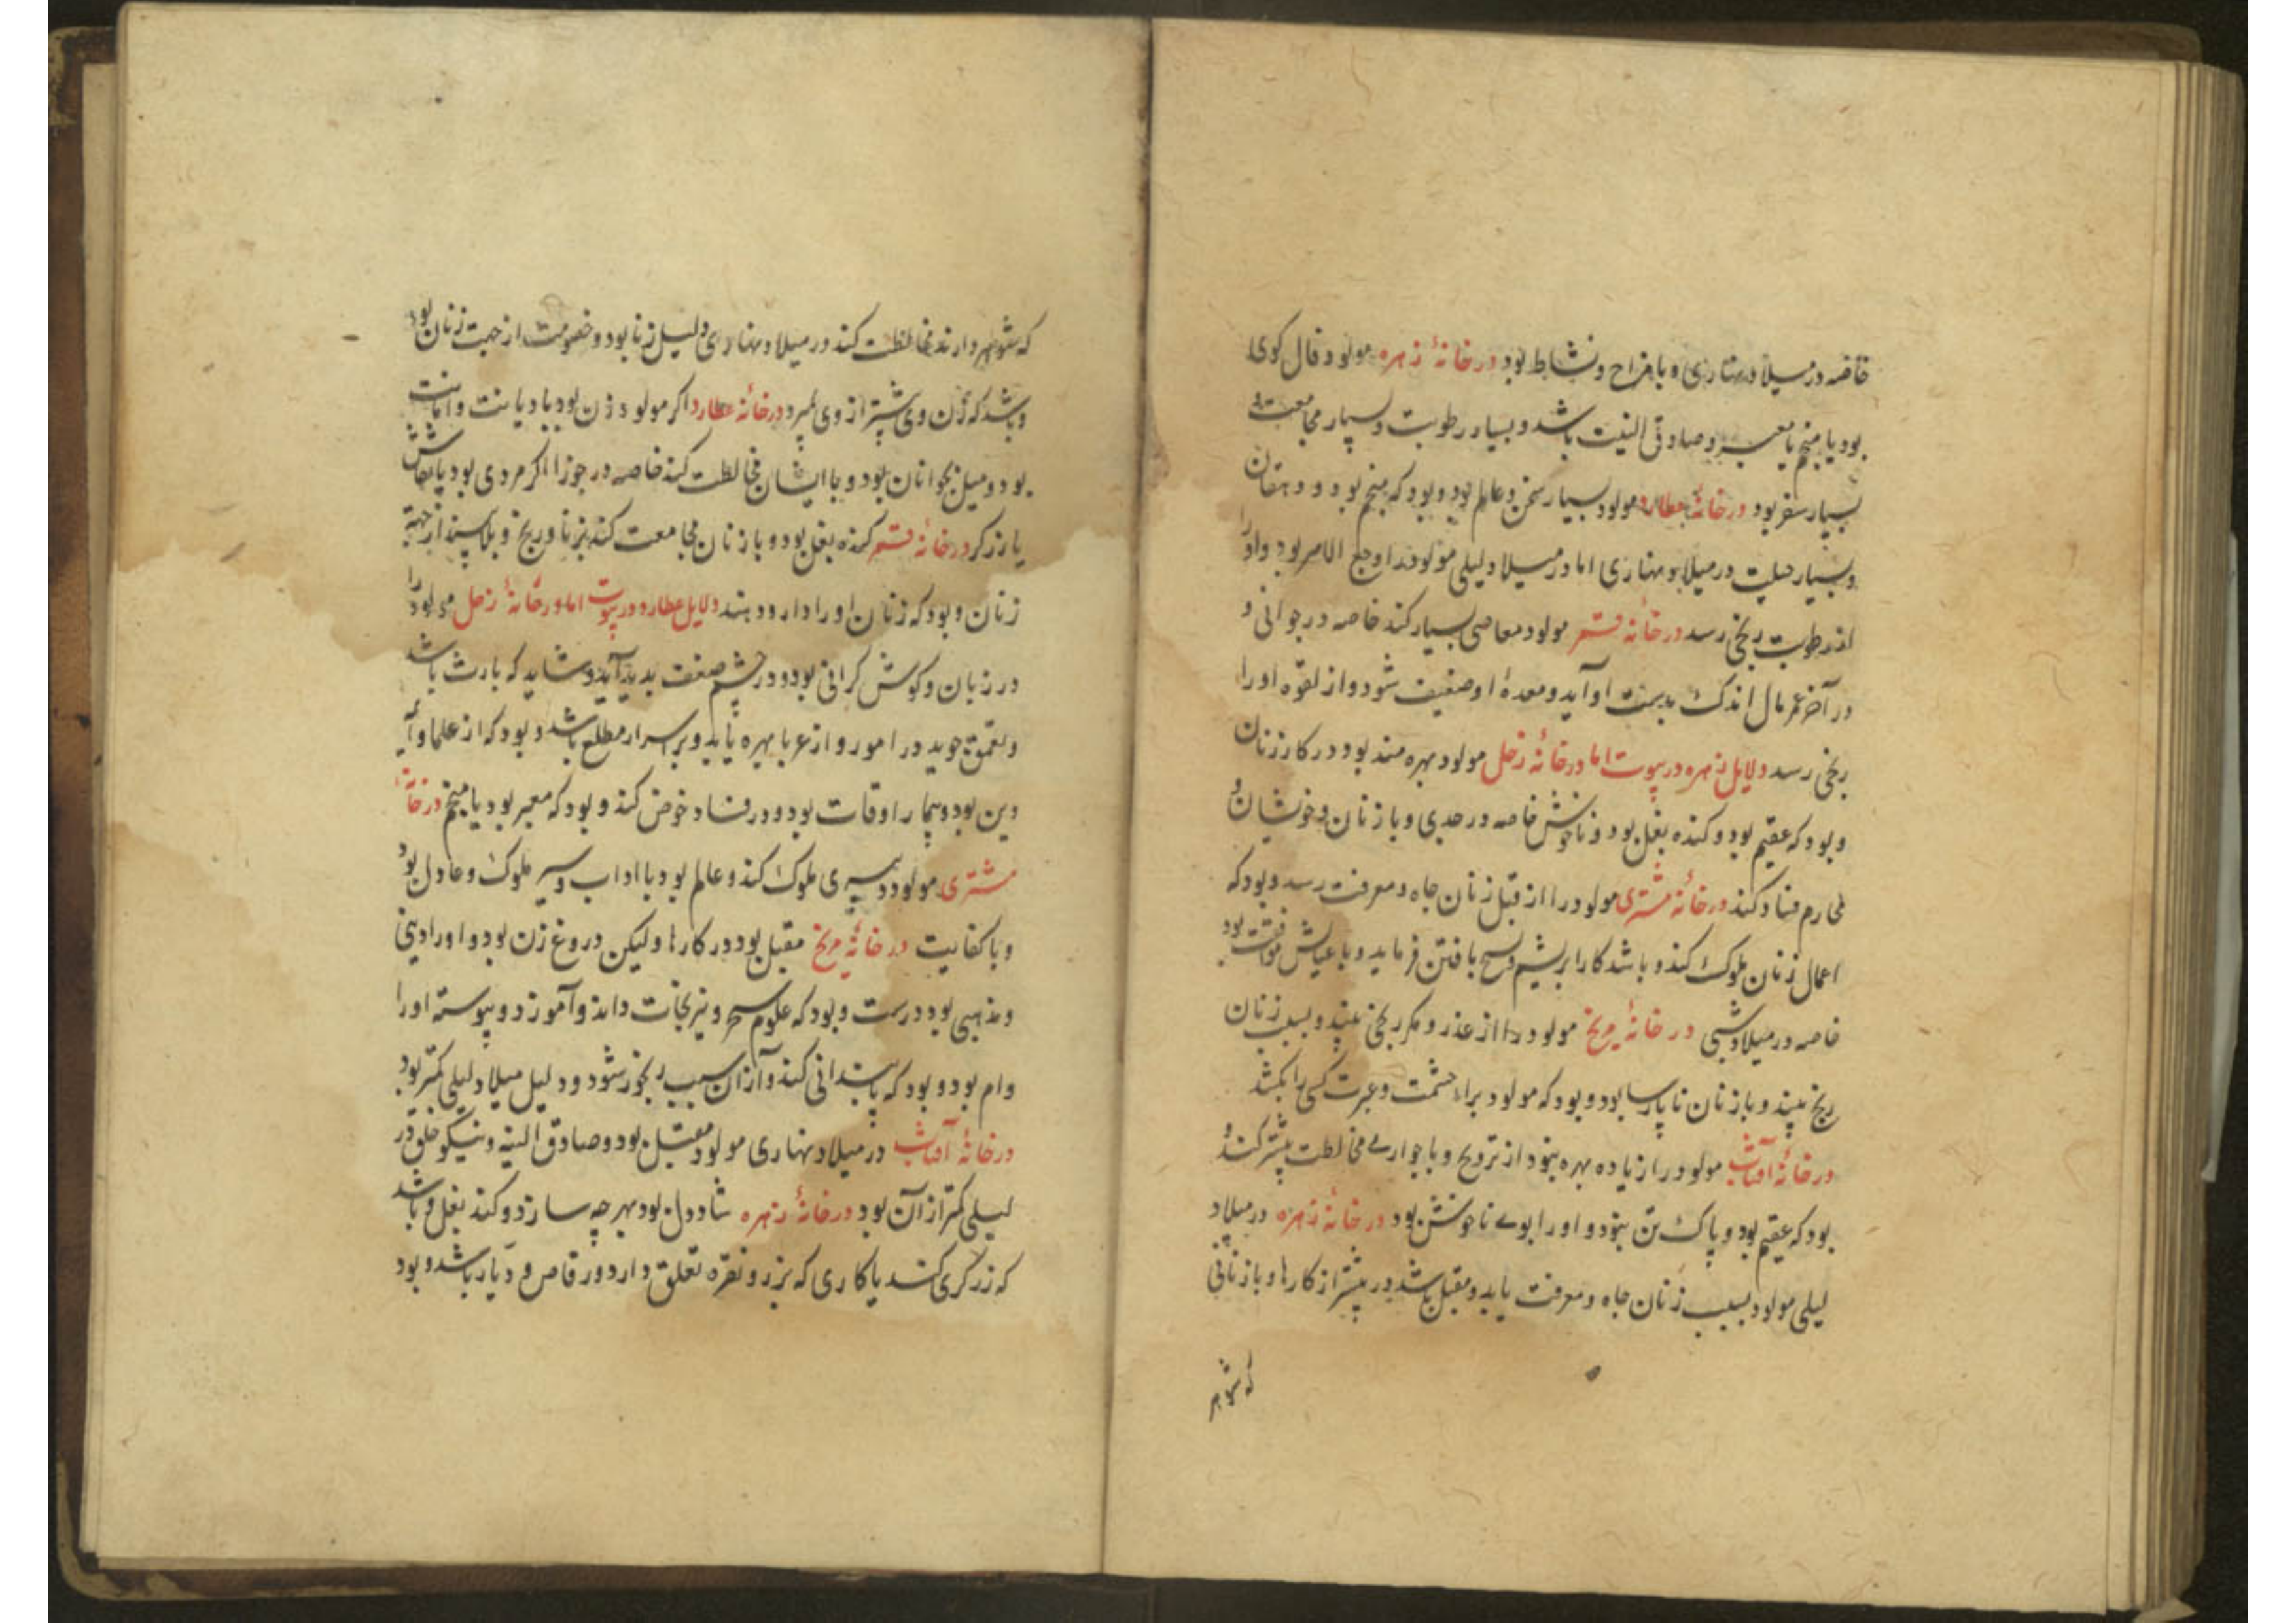 خاصه در میلاد نهاری و با مزاح و نشاط بود در خانهٔ زهره مولود فال کوی
بود یا منجم یا معبر و صادق النیت باشد و بسیار رطوبت و بسیار مجامعت و
بسیار سفر بود در خانهٔ عطارد مولود بسیار سخن و عالم بود و بود که منجم بود و دهقان
و بسیار حیلت در میلاد نهاری اما در میلاد لیلی مولود را وجع بود و او را
از رطوبت رنجی رسد در خانهٔ قمر مولود معاصی بسیار کند خاصه در جوانی و
در آخر عمر مال اندک بدست او آید و معدهٔ او ضعیف شود و از لقوه او را
رنجی رسد دلایل زهره در بیوت اما در خانهٔ زحل مولود بهره مند بود در کار زنان
و بود که عقیم بود و کنده بغل بود و ناخوش خاصه در جدی و با زنان و خویشان و
محارم فساد کند در خانهٔ مشتری مولود را از قبل زنان جاه و معرفت رسد و بود که
اعمال زنان ملوک کند و باشد کار ابریشم و نسج بافتن فرماید و با عیالش موافقت بود
خاصه در میلاد شبی در خانهٔ مریخ مولود را از غدر و مکر رنجی بیند و بسبب زنان
رنج بیند و با زنان ناپارسا بود و بود که مولود براء حشمت و غیرت کسی را بکشد
در خانهٔ آفتاب مولود را زیاده بهره نبود از تزویج و با جواری مخالطت بیشتر کند و
بود که عقیم بود و پاک تن نبود و او را بوے ناخوش بود در خانهٔ زهره در میلاد
لیلی مولود بسبب زنان جاه و معرفت یابد و مقبل باشد در بیشتر از کارها و با زنانی
که شوهر
که شوهر دارند مخالطت کند در میلاد نهاری دلیل زنا بود و خصومت از جهت زنان بود
و باشد که زن وی بیشتر از وی بمیرد در خانهٔ عطارد اکر مولود زن بود با دیانت و امانت
بود و میل بجوانان بود و با ایشان مخالطت کند خاصه در جوزا اکر مردی بود یا نقاش
یا زرکر در خانهٔ قمر کنده بغل بود و با زنان مجامعت کند بزنا و رنج و بلا بیند از جهة
زنان و بود که زنان او را دارو دهند دلایل عطارد در بیوت اما در خانهٔ زحل مولود را
در زبان و کوش کرانی بود و در چشم ضعف پدید آید و شاید که باشد
و تعمق جوید در امور و از بهره یابد و بر اسرار مطلع باشد و بود که از علما و
دین بود و بیمار اوقات بود و در فساد خوض کند و بود که معبر بود یا منجم در خانهٔ
مشتری مولود دبیری ملوک کند و عالم بود با اداب و سیر ملوک و عادل بود
و با کفایت در خانهٔ مریخ مقبل بود در کارها ولیکن دروغ زن بود و او را دینی
و مذهبی بود درست و بود که علوم سحر و نیرنجات داند و آموزد و پیوسته او را
وام بود و بود که پایندانی کند و از آن سبب رنجور شود و دلیل میلاد لیلی کمتر بود
در خانهٔ آفتاب در میلاد نهاری مولود مقبل بود و صادق النیه و نیکو خلق و در
لیلی کمتر از آن بود در خانهٔ زهره شاد دل بود بهر چه سازد و کند بغل و باشد
که زرکری کند یا کاری که بزر و نقره تعلق دارد و رقاص و باشد و بود